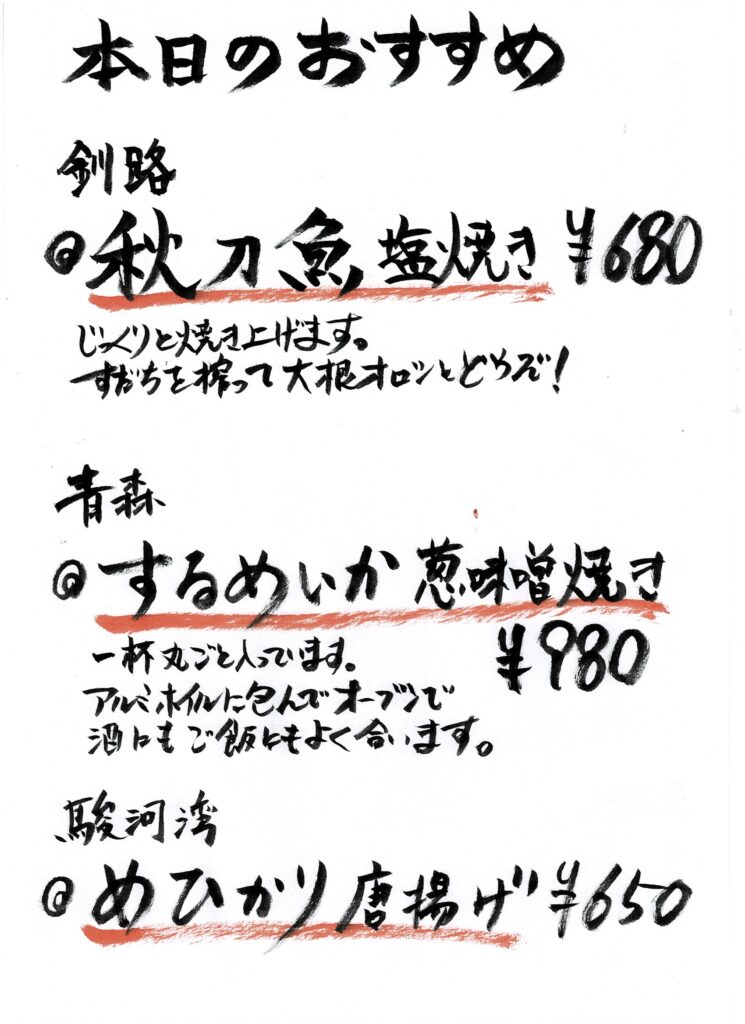 本日のおすすめ
釧路
◎秋刀魚塩焼き ¥680
じっくりと焼き上げます。
すだちを搾って大根オロシとどうぞ!
青森
◎するめいか葱味噌焼き
¥980
一杯丸ごと入っています。
アルミホイルに包んでオーブンで
酒にもご飯にもよく合います。
駿河湾
◎めひかり唐揚げ ¥650